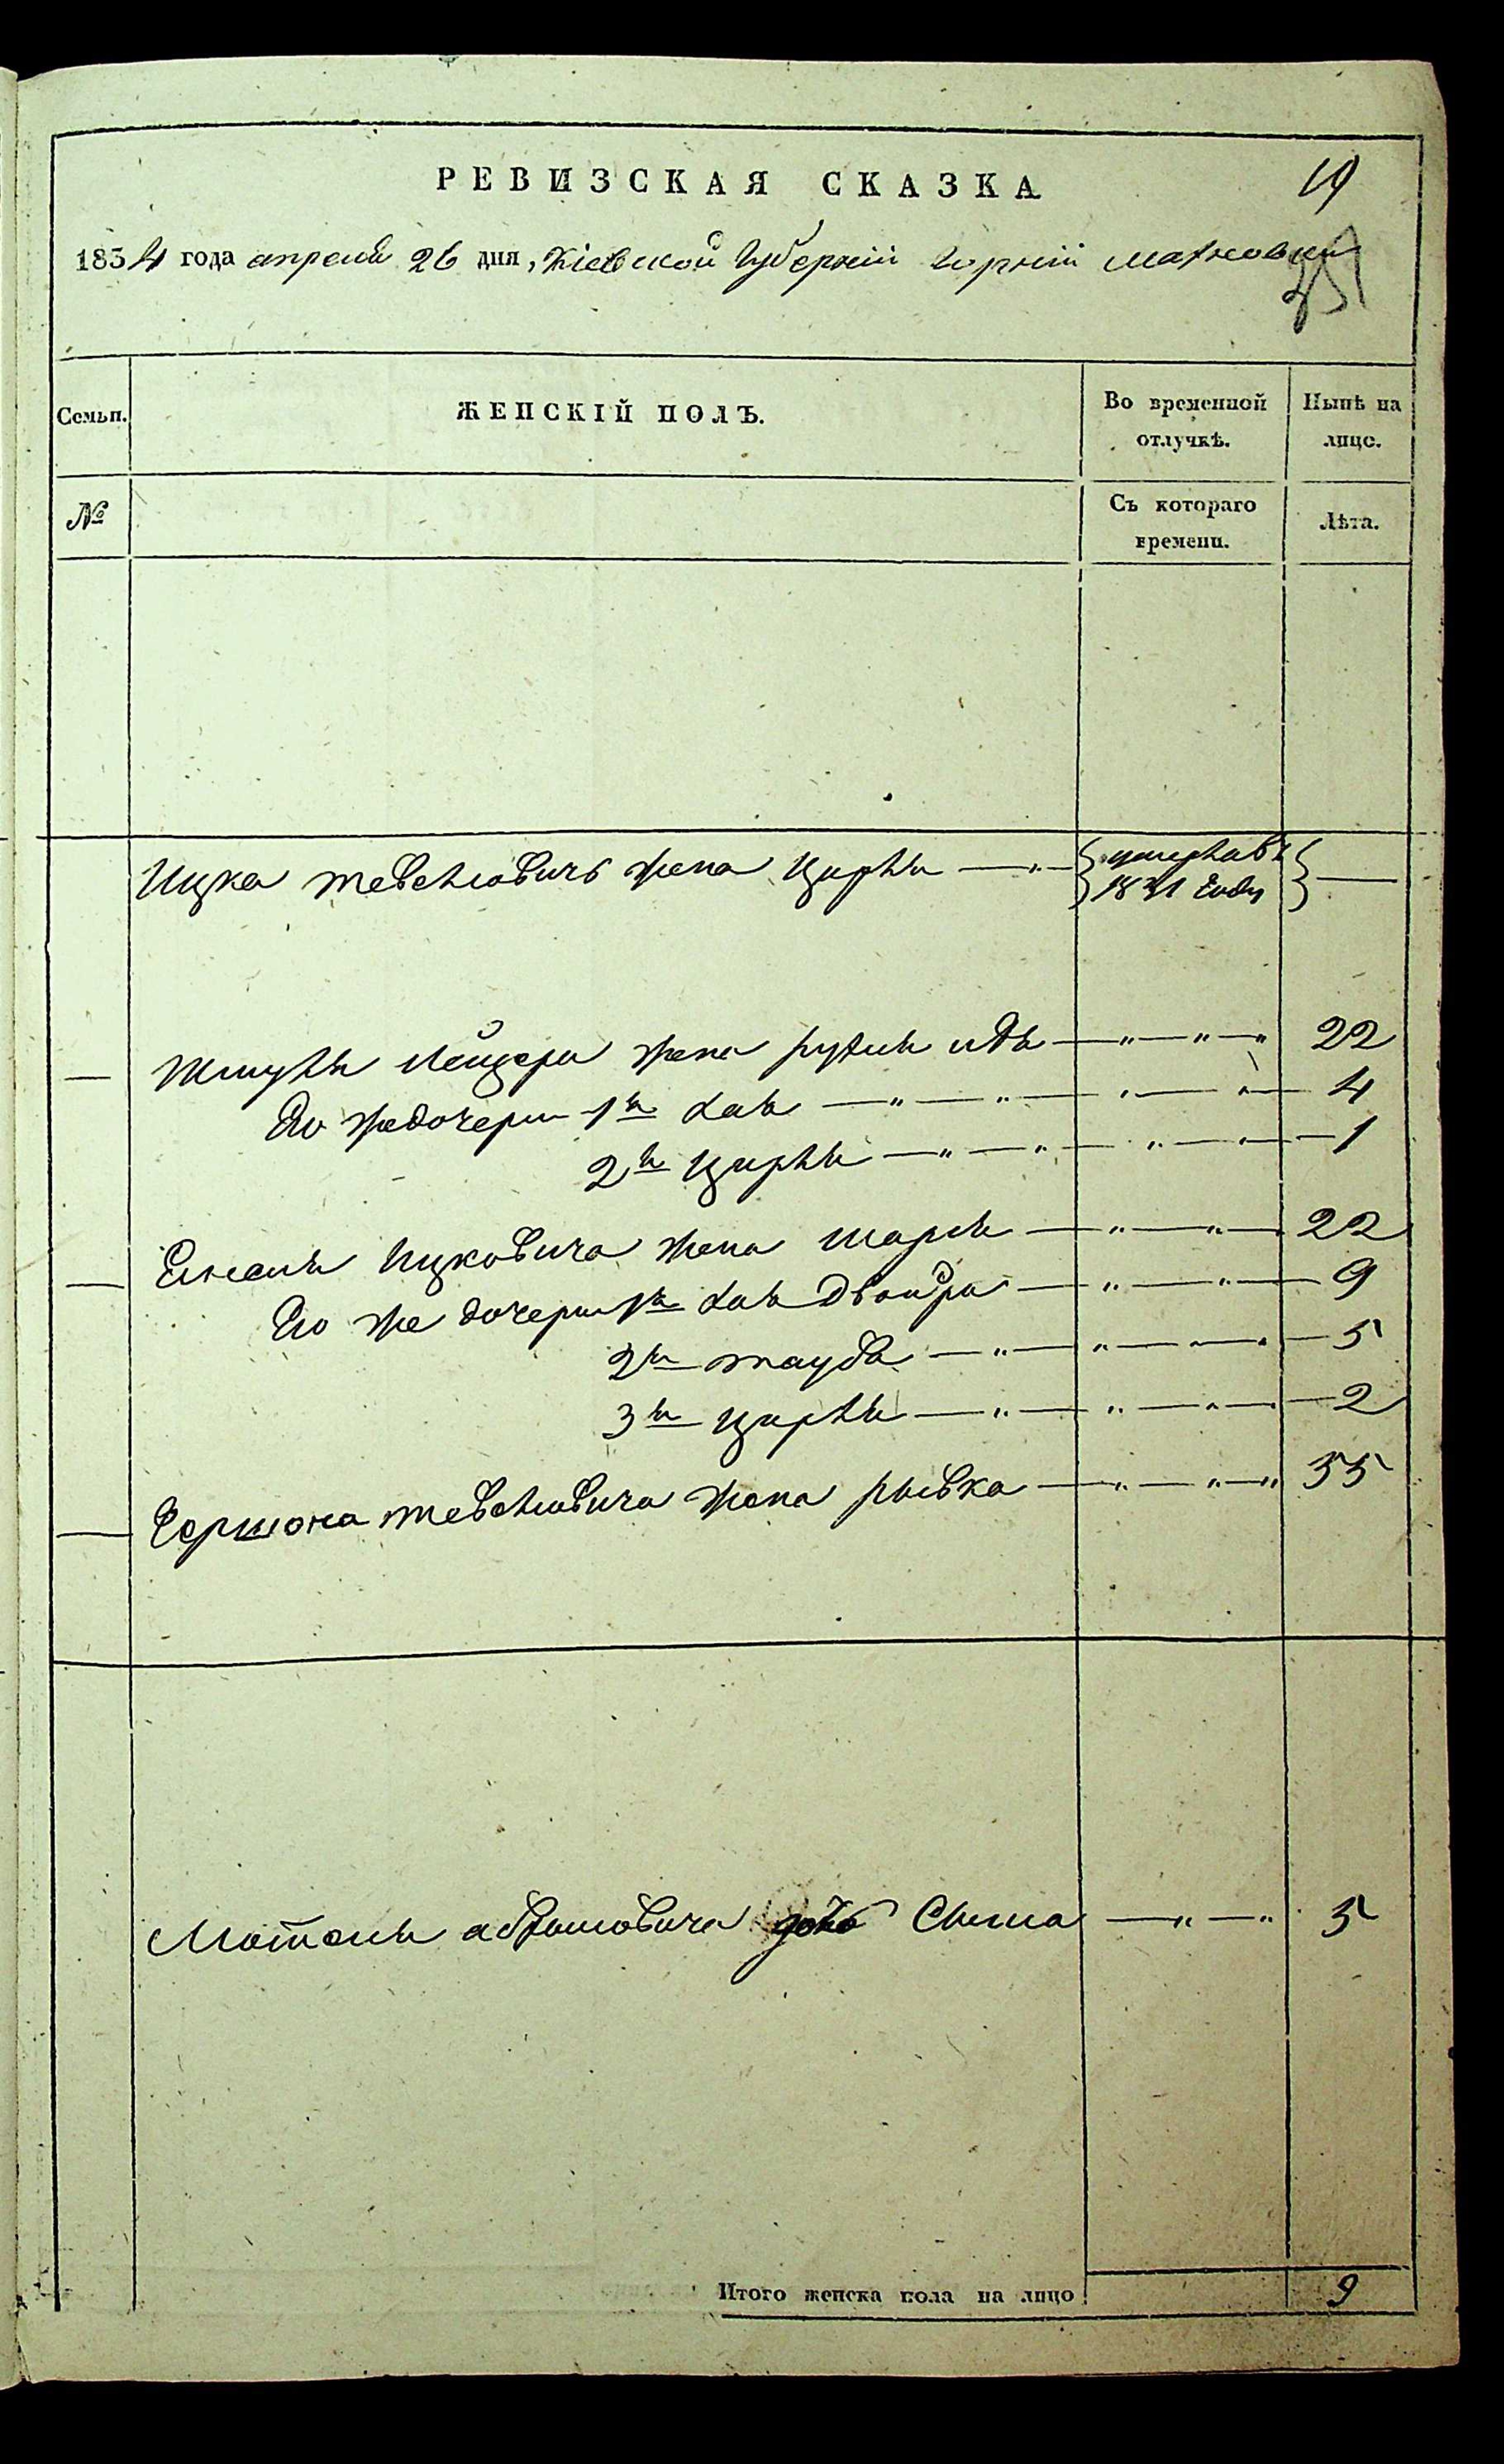 РЕВИЗСКАЯ СКАЗКА 19
1834 года апреля 26 дня, Кіевской Губерніи Махновки
351
Семьи. ЖЕНСКІЙ ПОЛЪ. Во временной отлучкѣ. Нынѣ на лицо.
№ Съ котораго времени. Лѣта.
Ицка тевелювичъ жена Цирля
1831 Году
лейзера жена рухля 22
Его же дочери 1я хая 4
2я Цирля 1
Ицковича жена 22
Его же дочери 1я хая двойра 9
2я тауба 5
3я Цирля 2
Гершона тевелювича жена рывка 55
абрамовича дочь Сима 5
Итого женска пола на лицо 9